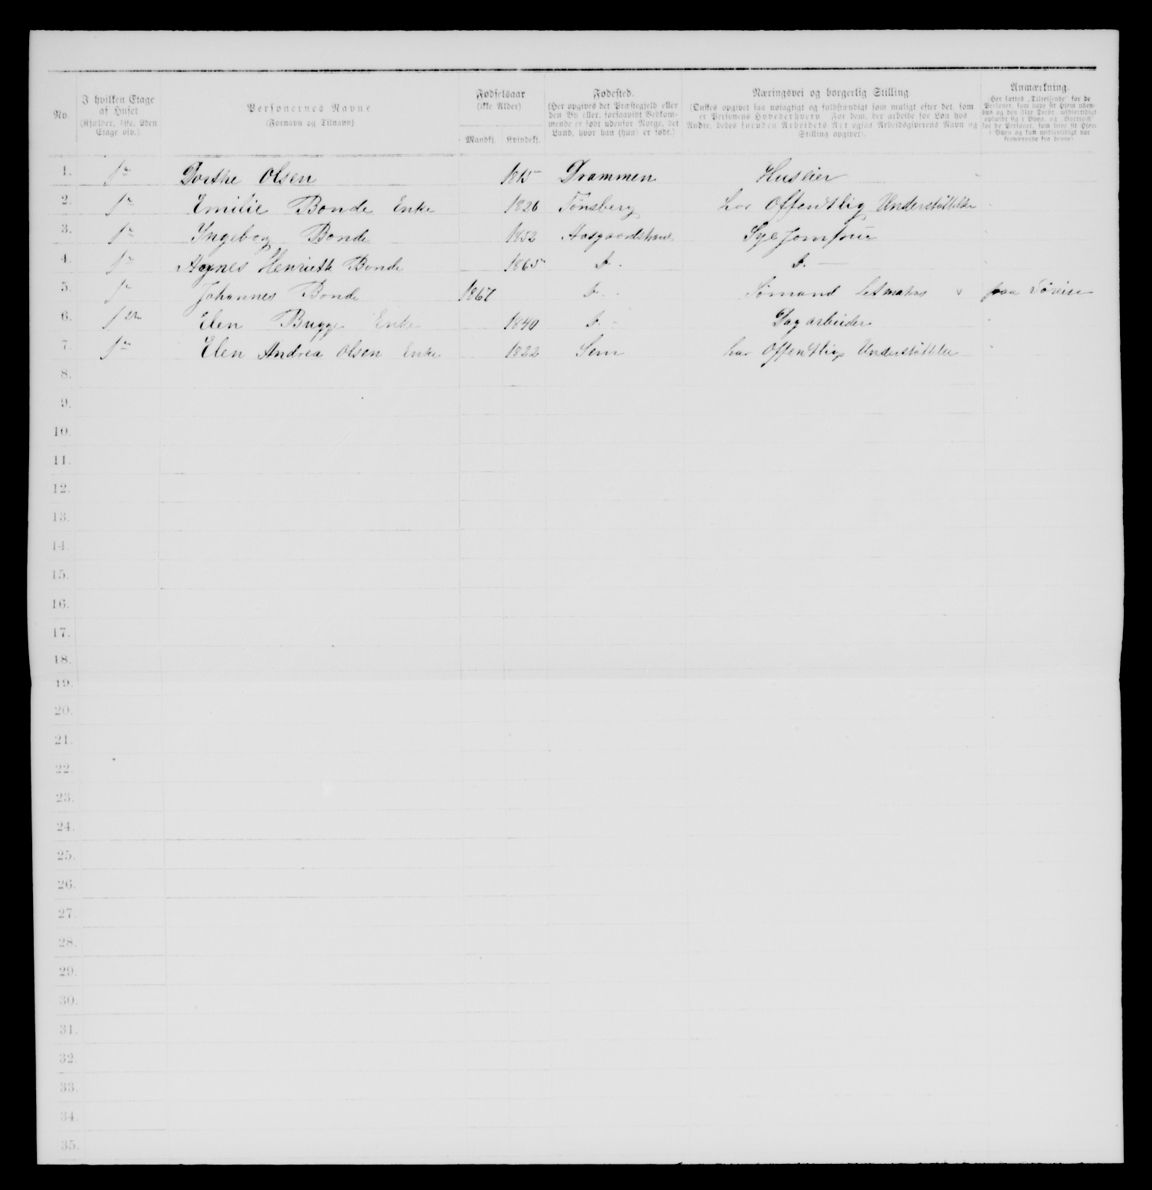 No.
I hvilken Etage af Huset (Kjelder, 1ste, 2den Etage osv.).
Personernes Navne (Fornavn og Tilnavn)
Fødselsaar (ikke Alder)
Mandkj. Kvindekj.
Fødested. (Her opgives det Præstegjeld eller den By eller, forsaavidt Vedkommende er født udenfor Norge, det Land, hvor han (hun) er født.)
Næringsvei og borgerlig Stilling (Ønskes opgivet saa nøiagtigt og fuldstændigt som muligt efter det, som er Personens Hovederhverv. For dem, der arbeide for Løn hos Andre, bedes foruden Arbeidets Art ogsaa Arbeidsgiverens Navn og Stilling opgivet).
Anmærkning.
1. 1ste Dorthe Olsen 1815 Drammen Huseier
2. 1ste Emilie Bonde Enke 1826 Tønsberg har Offentlig Understøttelse
3. 1ste Ingebog Bonde 1852 Aasgaardstrand Sye Jomfrue
4. 1ste Agnes Henriette Bonde 1865 D. D.
5. 1ste Johannes Bonde 1867 D. Sømand
6. 1ste Elen Bugge Enke 1840 D. Dagarbeider
7. 1ste Elen Andrea Olsen Enke 1822 Sem har Offentlig Understøttelse
8.
9.
10.
11.
12.
13.
14.
15.
16.
17.
18.
19.
20.
21.
22.
23.
24.
25.
26.
27.
28.
29.
30.
31.
32.
33.
34.
35.